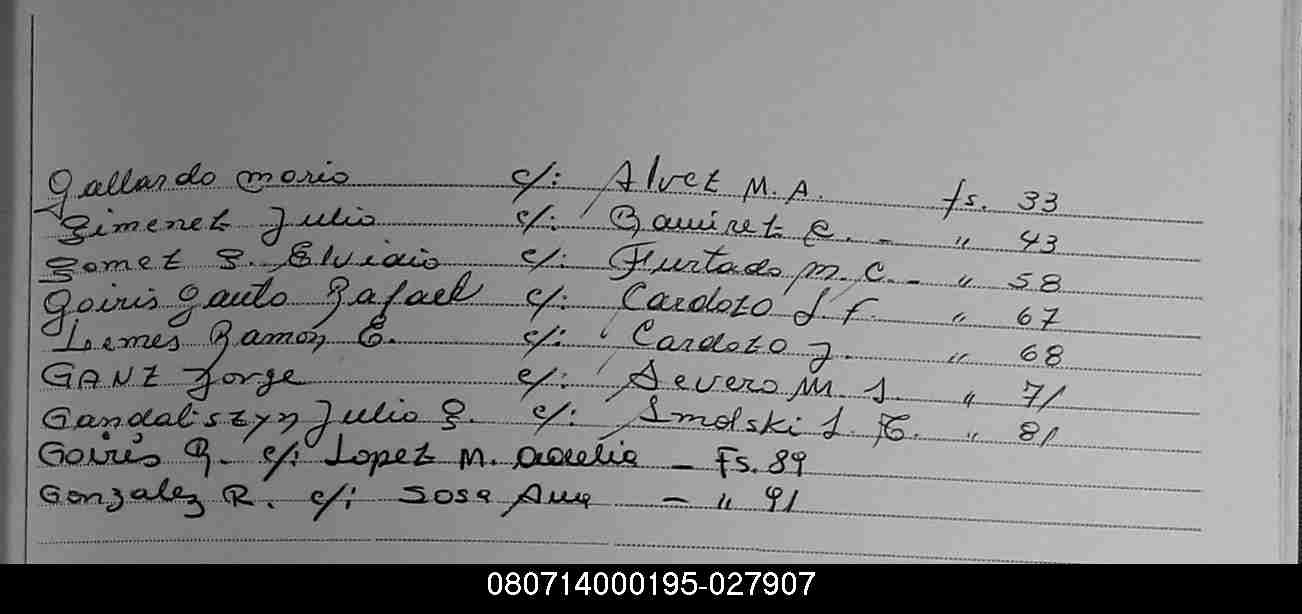 Gallardo Mario c/: Alvez M. A. fs. 33
Gimenez Julio c/: Ramirez E. - " 43
Gomez G. Elvidio c/: Hurtado M. C. - " 58
Goiris Gauto Rafael c/: Cardozo J F. " 67
Ramon E. c/: Cardozo J. " 68
GANZ Jorge c/: Severo M J. " 71
Gandaliszyn Julio G. c/: Smolski L. " 81
Goiris R. c/: Lopez M. Aurelia - Fs. 89
Gonzalez R. c/: Sosa Ana - " 91
080714000195-027907